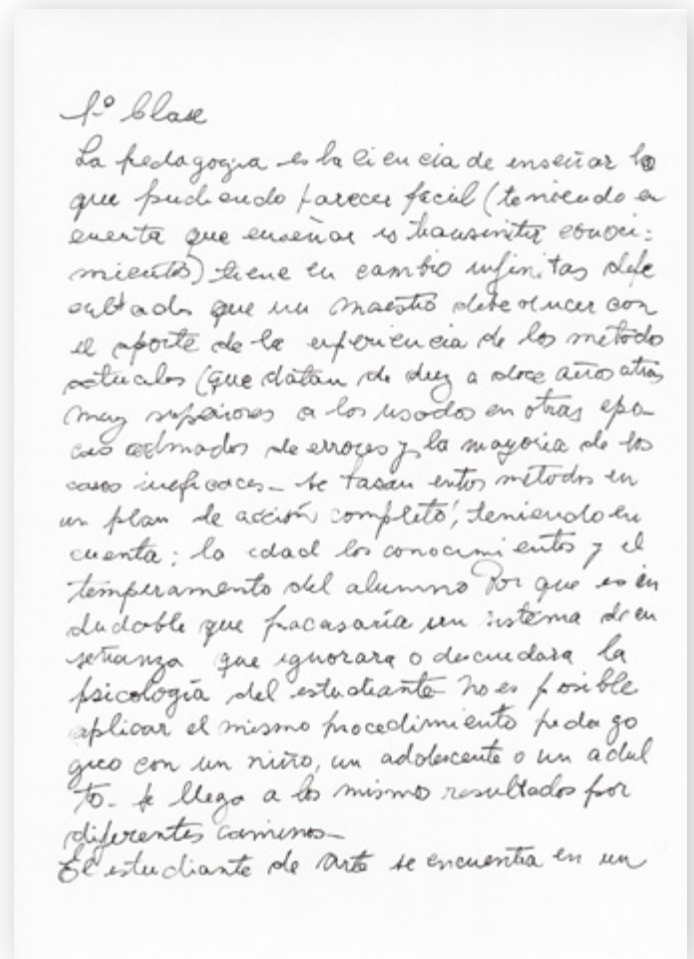 1º Clase
La pedagogia es la ciencia de enseñar lo
que pudiendo parecer fácil (teniendo en
cuenta que enseñar es transmitir conoci-
mientos) tiene en cambio infinitas difi
cultades que un maestro debe vencer con
el aporte de la experiencia de los metodos
actuales (que datan de diez a doce años atrás
muy superiores a los usados en otras epo-
cas colmados de errores y la mayoria de los
casos ineficaces - se basan estos métodos en
un plan de acción completo, teniendo en
cuenta: la edad los conocimientos y el
temperamento del alumno Por que es in
dudable que fracasaría un sistema de en
señanza que ignorara o descuidara la
psicología del estudiante no es posible
aplicar el mismo procedimiento pedago
gico con un niño, un adolescente o un adul
to - se llega a los mismos resultados por
diferentes caminos -
El estudiante de arte se encuentra en un